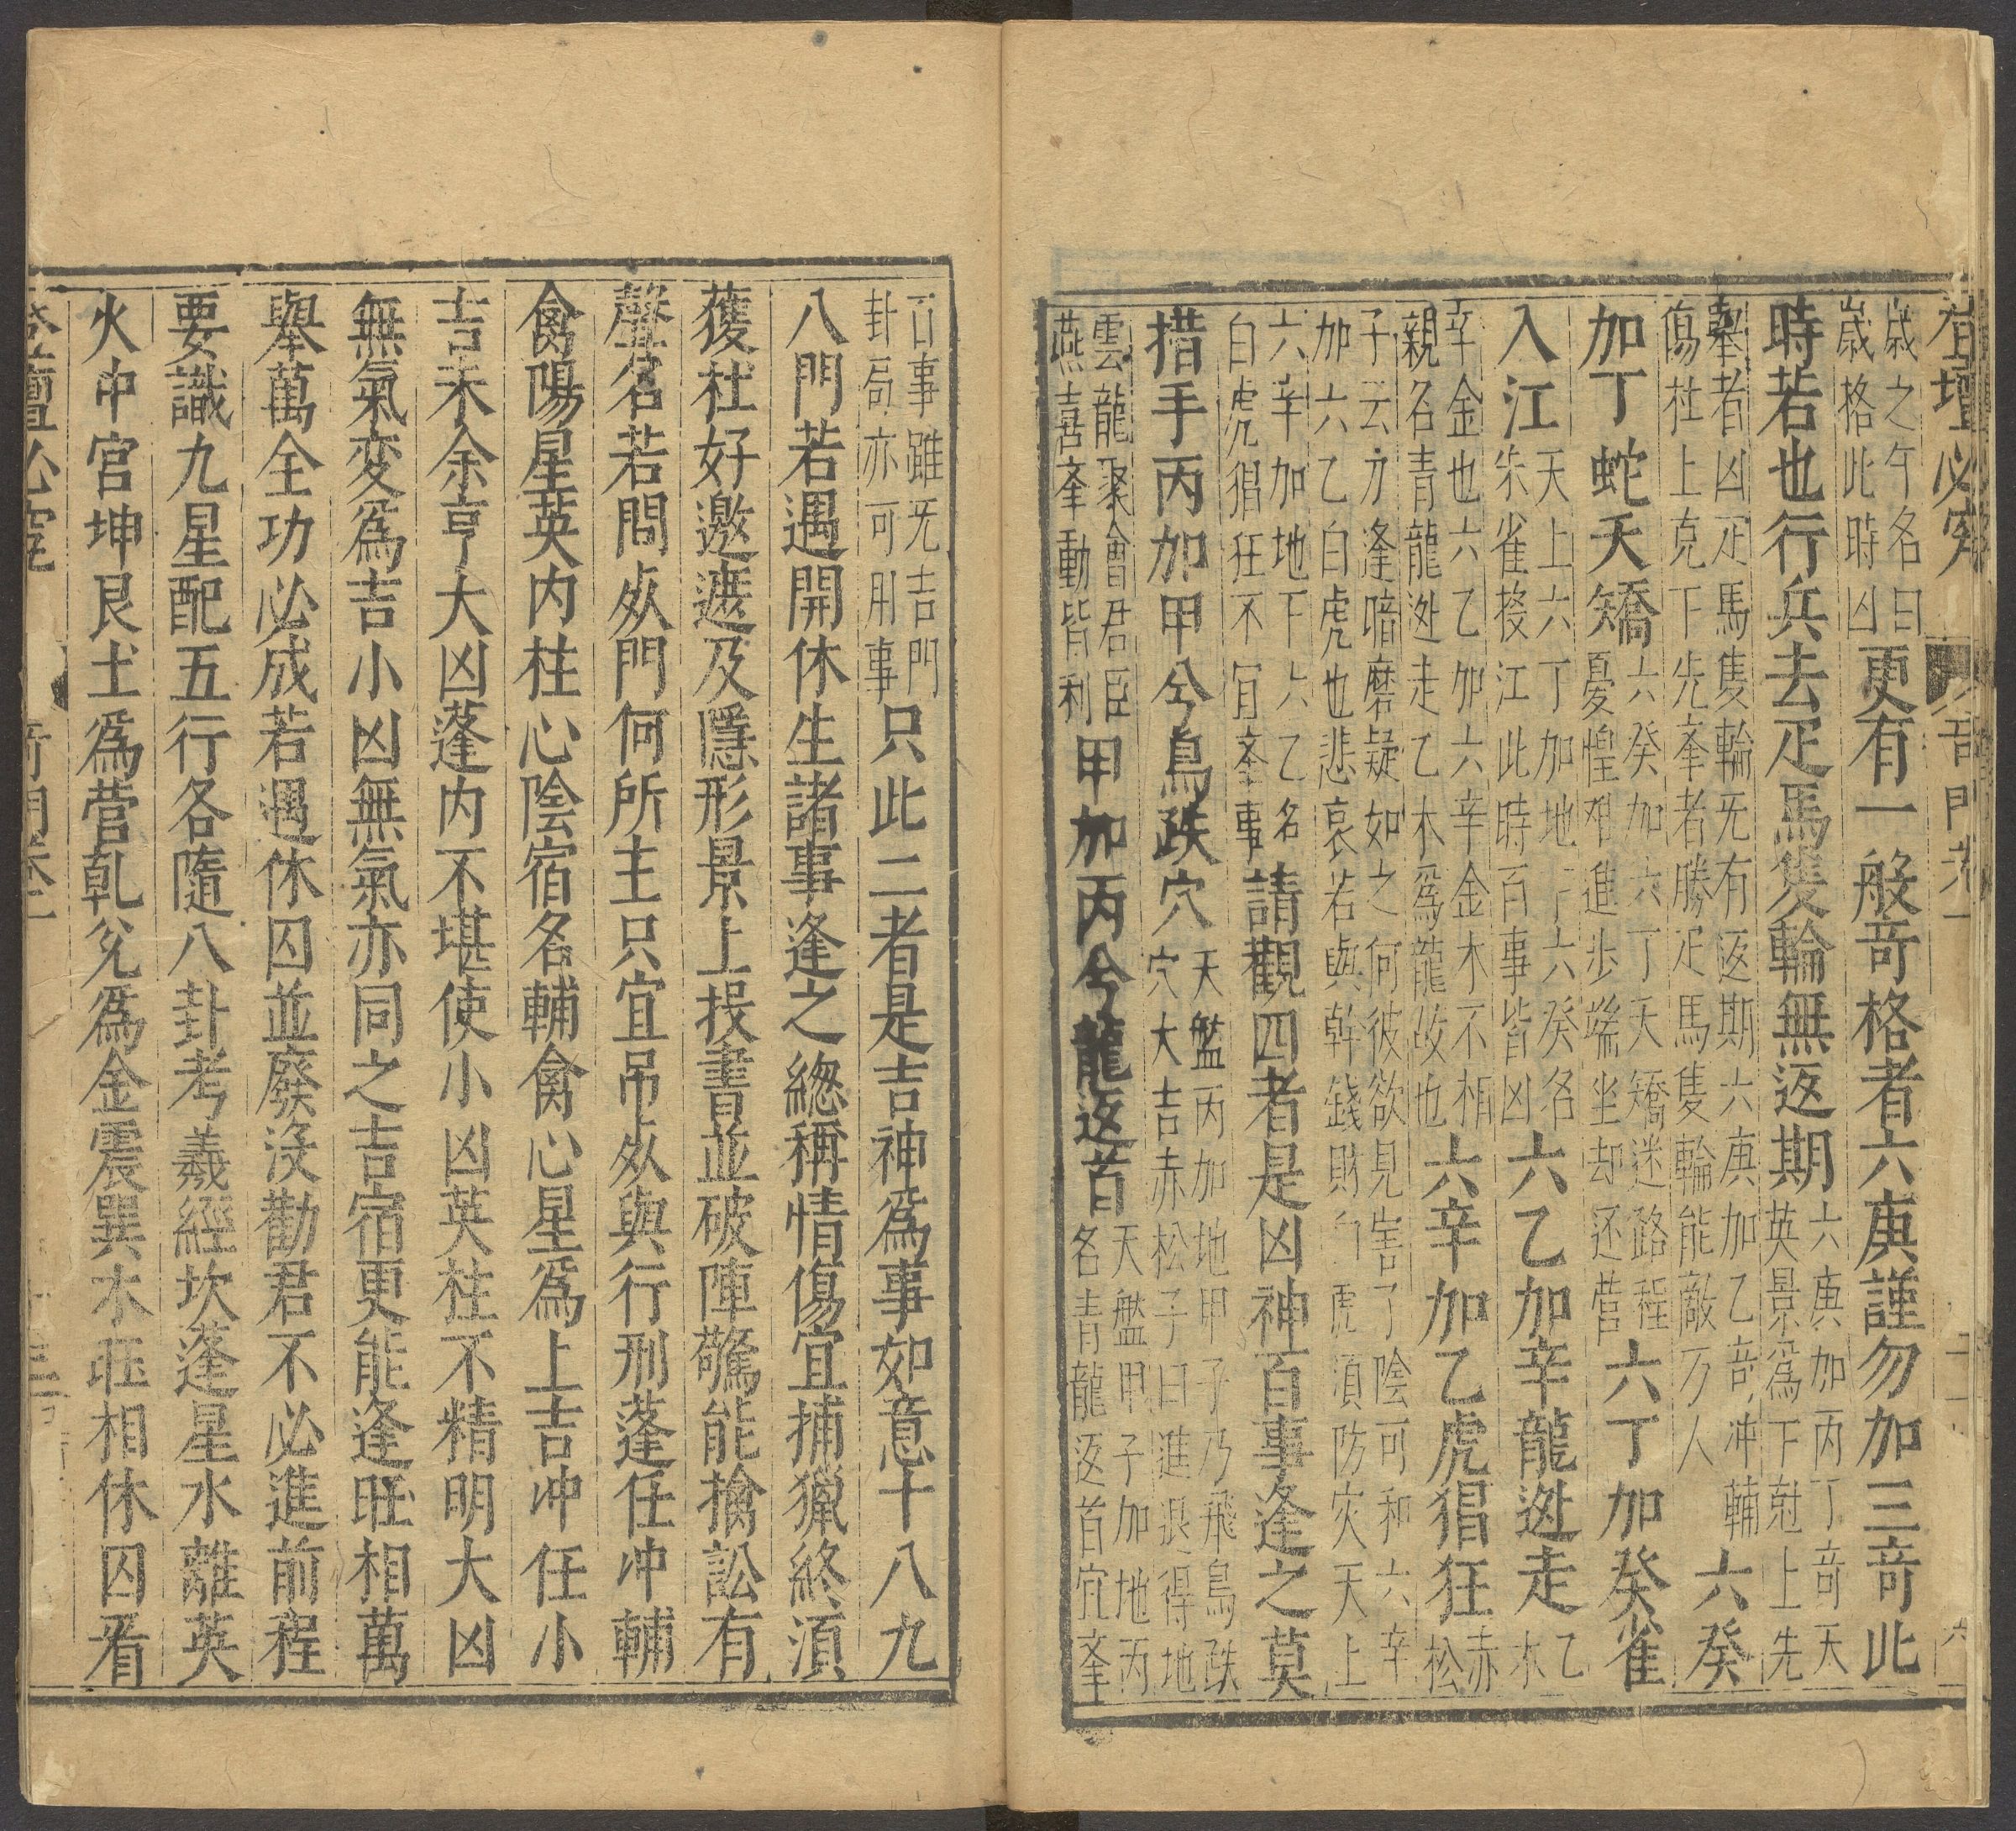 登壇必究 奇門卷一
歲之午名曰歲格此時凶更有一般竒格者六庚謹勿加三竒此
時若也行兵去疋馬隻輪無返期六庚加丙丁竒天英景為下尅上先
擧者凶疋馬隻輪旡有返期六庚加乙竒冲輔傷杜上克下先夆者勝疋馬隻輪能敵万人六癸
加丁蛇夭矯六癸加六丁天矯迷路程憂惶艰進步端坐却还营六丁加癸雀
入江天上六丁加地下六癸名朱雀投江此時百事皆凶六乙加辛龍迯走乙木
辛金也六乙加六辛金木不相親名青龍迯走乙木為龍故也六辛加乙虎猖狂赤松
子云方逢暗磨疑如之何彼欲見害了陰可和六辛加六乙白虎也悲哀若與幹錢財白虎須防灾天上
六辛加地下六乙名白虎猖狂不宜夆事請觀四者是凶神百事逢之莫
措手丙加甲兮鳥跌穴天盤丙加地甲子乃飛鳥跌穴大吉赤松子曰進退得地
雲龍聚會君臣燕喜夆動皆利甲加丙兮龍返首天盤甲子加地丙名青龍返首宜夆
百事雖旡吉門卦局亦可用事只此二者是吉神為事如意十八九
八門若遇開休生諸事逢之緫稱情傷宜捕獵終須
獲杜好邀遮及隱形景上投書並破陣驚能擒訟有
聲名若問死門何所主只宜吊死與行刑蓬任冲輔
禽陽星英内柱心陰宿名輔禽心星為上吉冲任小
吉未余亨大凶蓬内不堪使小凶英柱不精明大凶
無氣変為吉小凶無氣亦同之吉宿更能逢旺相萬
舉萬全功必成若遇休囚並廢没勸君不必進前程
要識九星配五行各隨八卦考羲經坎蓬星水離英
火中宫坤艮土為營乹兌為金震巽木旺相休囚看
登壇必究 奇門卷一